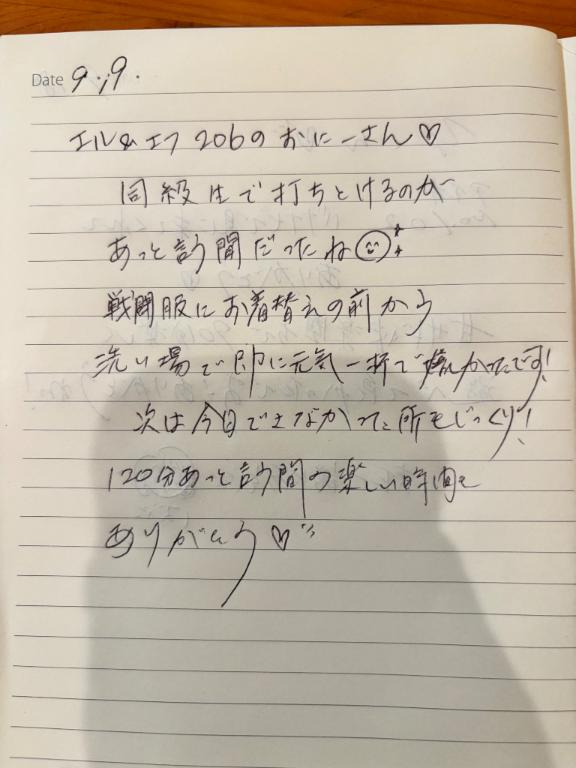 Date 9.19.
エル&エフ 206のおにーさん♡
同級生で打ちとけるのが
あっと訪問だったね
戦闘服にお着替えの前から
洗い場で即に元気一杯で嬉しかったです!
次は今日できなかった所もじっくり!
120分あっと訪問の楽しい時間を
ありがとう♡